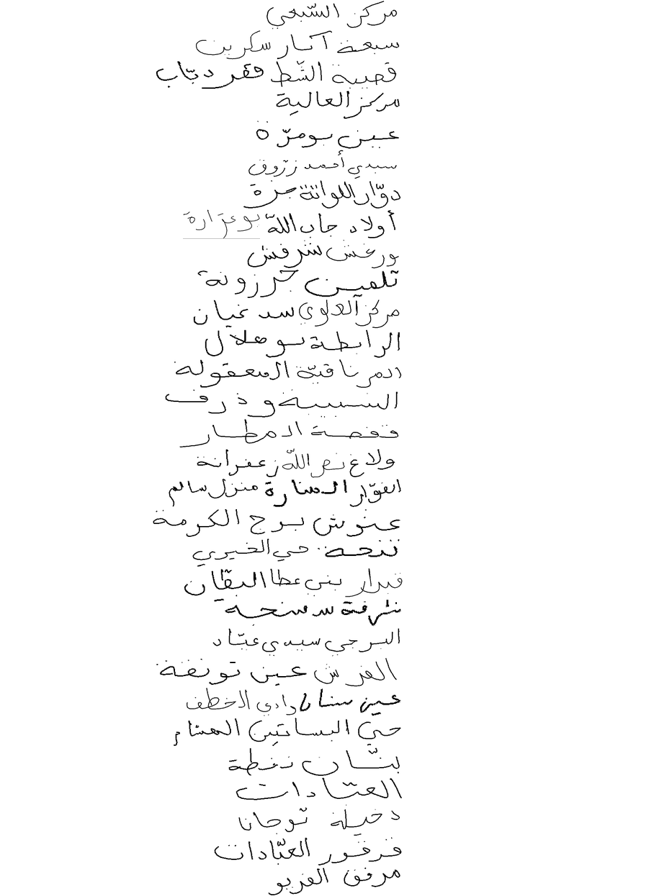 مركز الشبعي
سبعة آبار سكرين
قصيبة الشّط فقر دبّاب
مركز العالية
عين بومرّة
سيدي أحمد زرّوق
دوّار اللواتة جزة
أولاد جاب اللّه بوعرارة
ورغش شرفش
تلمين خرزونة
مركز العلوي سد غيان
الرابطة بوهلال
المرناقيّة المعقولة
السبيبة وذرف
قفصة المطار
ولاغ نصر اللّه زعفرانة
الفوّار المنارة منزل سالم
عنوش برج الكرمة
ننجة حي الخيري
قيدار بني عطا البقّان
شرفة
البرجي سيدي عبّاد
الفرش عين تونقة
عين سنان وادي الاخطف
حي البساتين الهشام
بنّان نفطة
العبّادات
دخيلة توجانا
قرقور العبّادات
مرفق الغريو